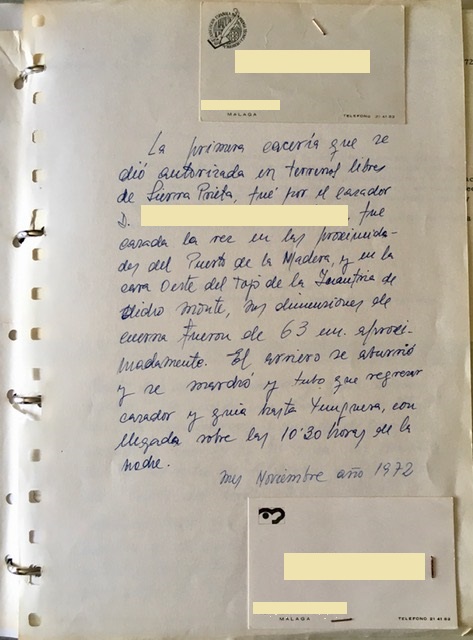 MALAGA TELEFONO 21 41 66
La primera cacería que se
dió autorizada en terrenos libres
de Sierra Prieta, fué por el cazador
D. , fue
cazada la rez en las proximida-
des del Puerto de la Madera, y en la
cara Oeste del Tajo de la
monte, sus dimensiones de
cuerna fueron de 63 cm. aproxi-
madamente. El arriero se aburrió
y se mardró y tubo que regresar
cazador y guia hasta Yunquera, con
llegada sobre las 10'30 horas de la
noche.
mes Noviembre año 1972
MALAGA TELEFONO 21 41 66